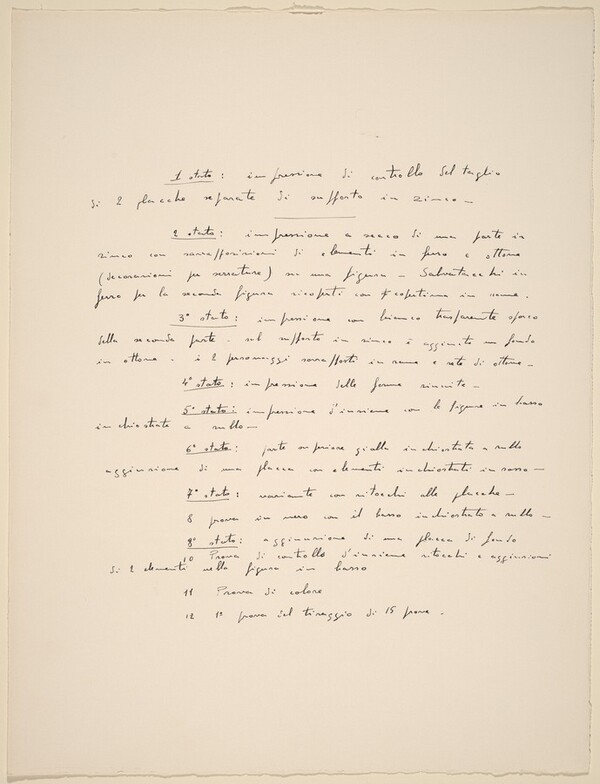 1 stato : impressione di controllo del taglio
di 2 placche separate di supporto in zinco –
2 stato : impressione a secco di una parte in
zinco con sovrapposizioni di elementi in ferro e ottone
(decorazioni per serrature) su una figura – Salvatacchi in
ferro per la seconda figura ricoperti con copertina in rame .
3° stato : impressione con bianco trasparente sporco
della seconda parte – sul supporto in zinco è aggiunto un fondo
in ottone – i 2 personaggi sovrapposti in rame e rete di ottone –
4° stato : impressione delle forme riunite –
5° stato : impressione d'insieme con le figure in basso
inchiostrate a rullo –
6° stato : parte superiore gialla inchiostrata a rullo
aggiunzione di una placca con elementi inchiostrati in rosso –
7° stato : variante con ritocchi alle placche –
8 prova in nero con il basso inchiostrato a rullo –
8° stato : aggiunzione di una placca di fondo
10 Prova di controllo d'insieme ritocchi e aggiunzioni
di 2 elementi nella figura in basso
11 Prova di colore
12 1° prova del tiraggio di 15 prove .